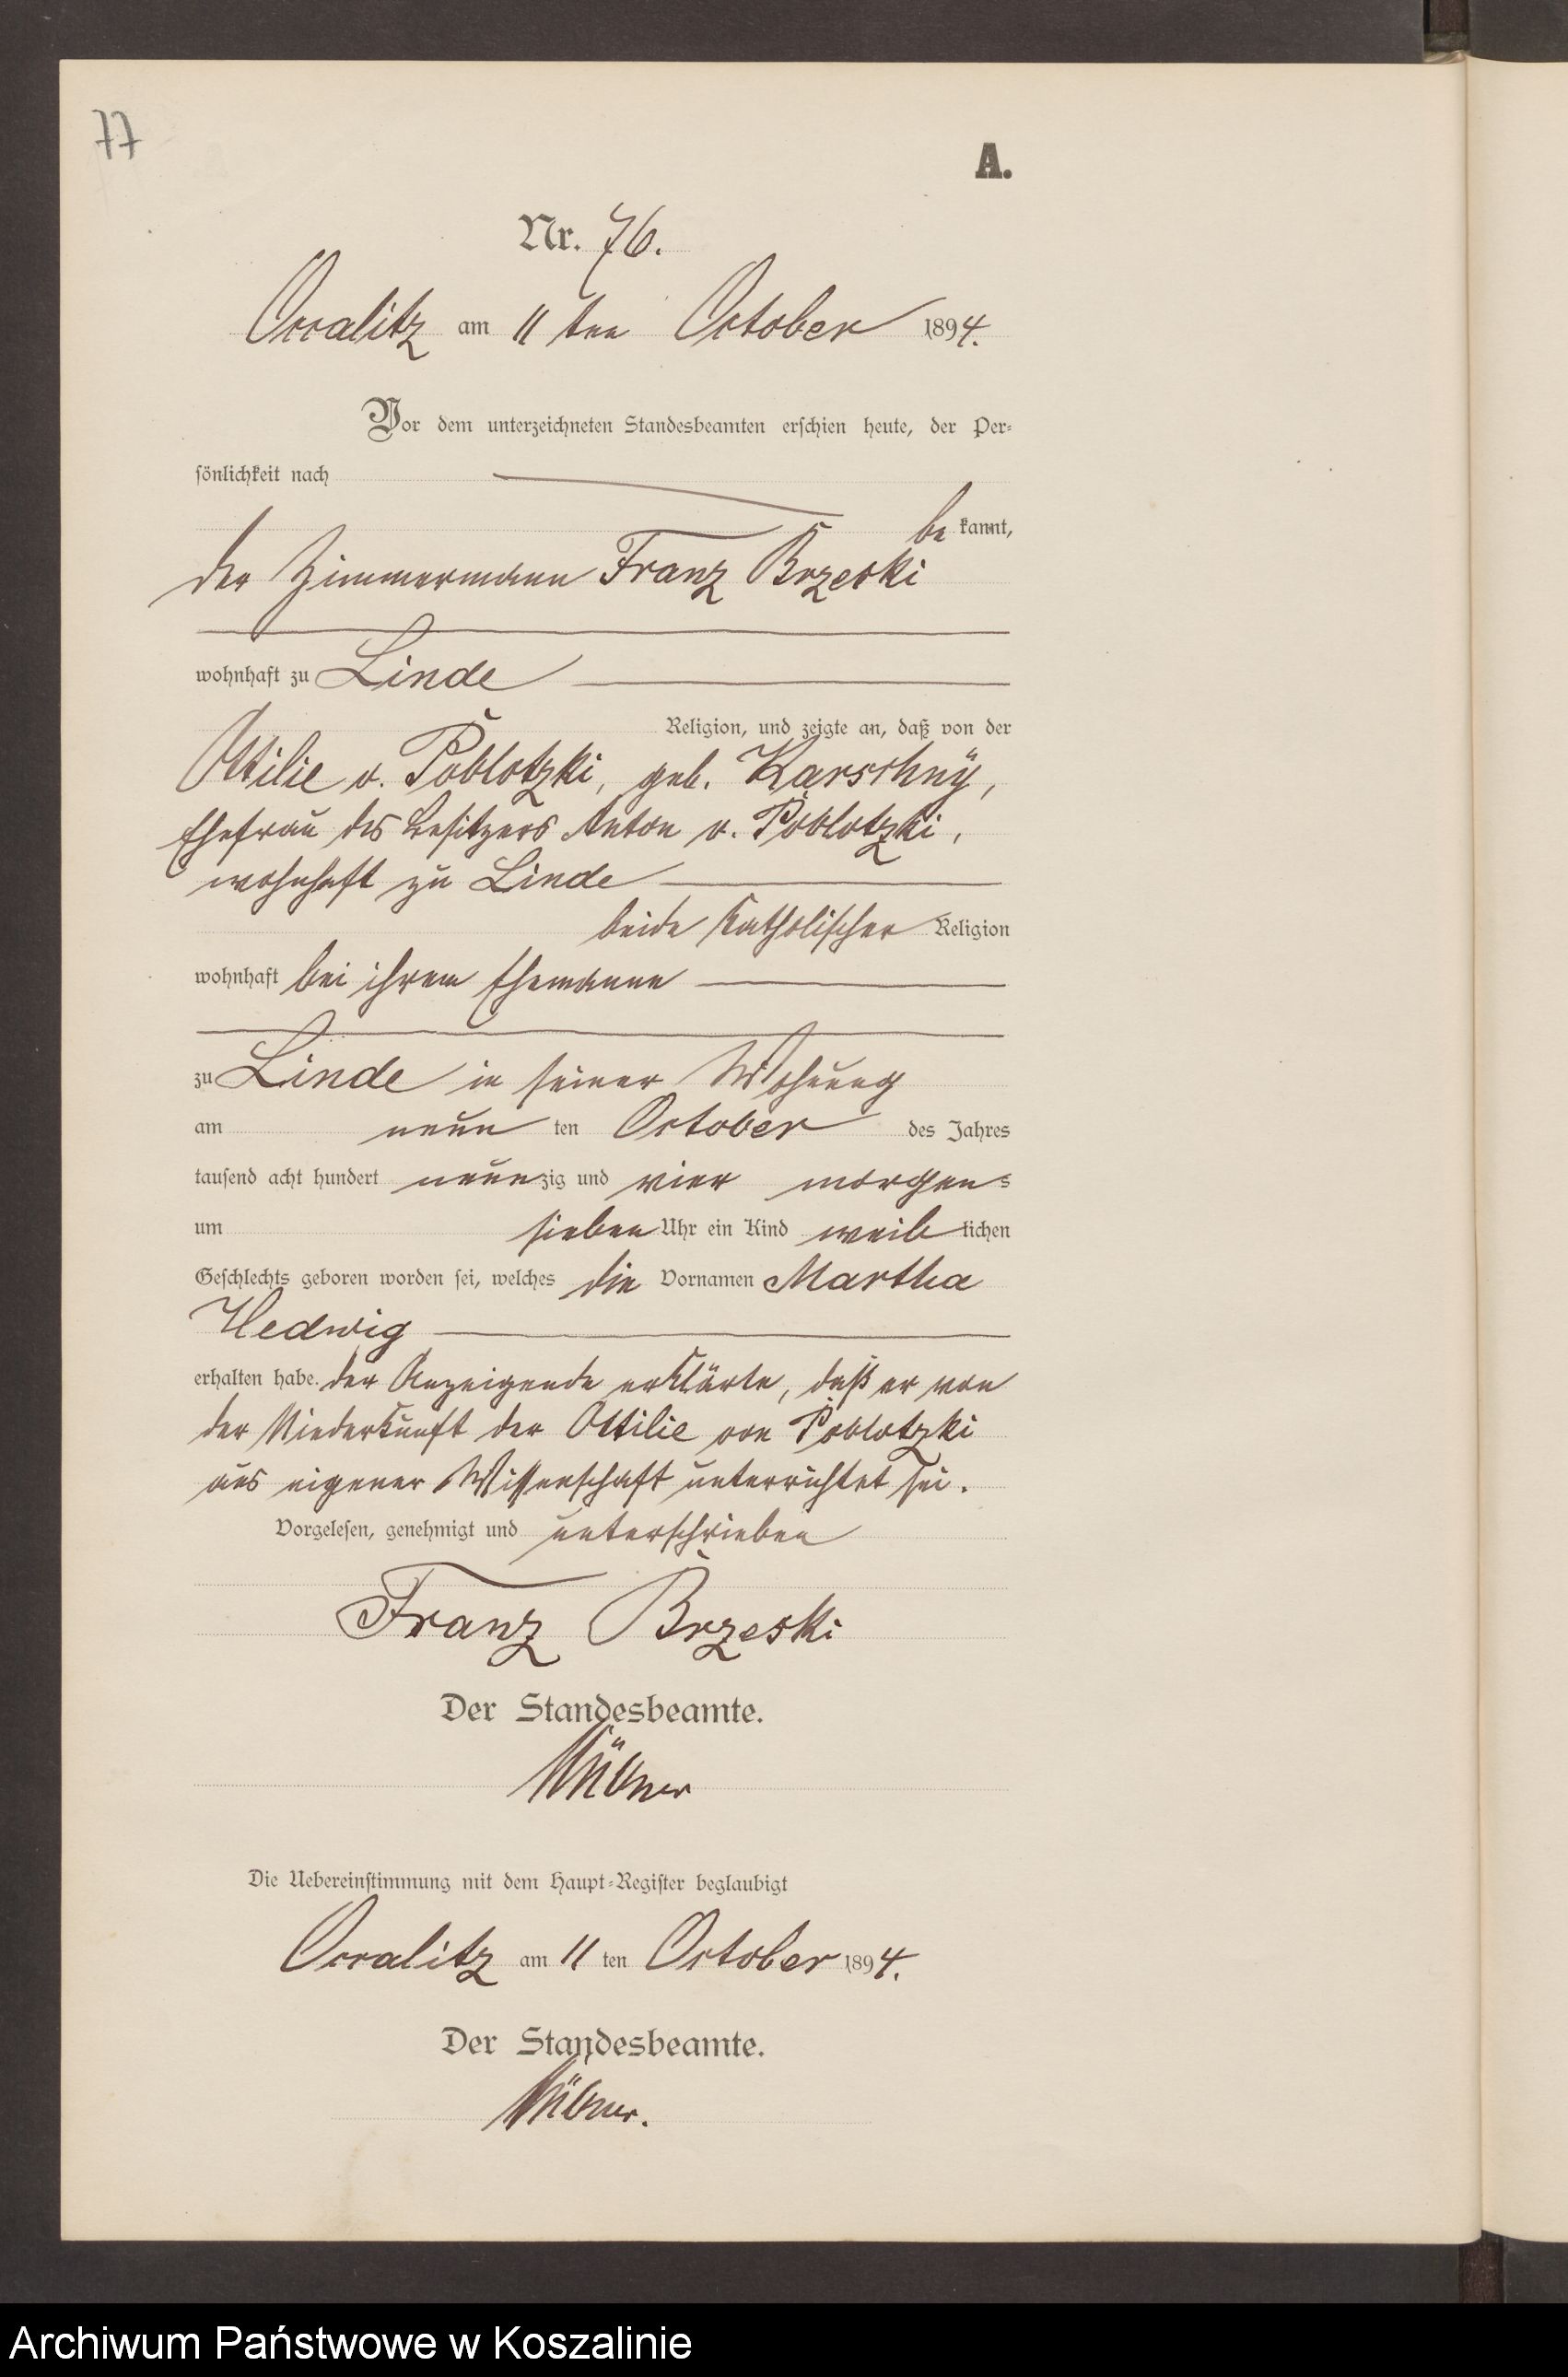 77
A.
Nr. 76.
Occalitz am 11 ten October 1894.
Vor dem unterzeichneten Standesbeamten erschien heute, der Per-
sönlichkeit nach
be kannt,
der Zimmermann Franz Brzeski
wohnhaft zu Linde
Religion, und zeigte an, daß von der
Ottilie v. Poblotzki, geb. Karschny,
Ehefrau des Besitzers Anton v. Poblotzki,
wohnhaft zu Linde
beide katholischer Religion
wohnhaft bei ihrem Ehemanne
zu Linde in seiner Wohnung
am neun ten October des Jahres
tausend acht hundert neunzig und vier morgens
um sieben Uhr ein Kind weib lichen
Geschlechts geboren worden sei, welches die Vornamen Martha
Hedwig
erhalten habe. der Anzeigende erklärte, daß er von
der Niederkunft der Ottilie von Poblotzki
aus eigener Wissenschaft unterrichtet sei.
Vorgelesen, genehmigt und unterschrieben
Franz Brzeski
Der Standesbeamte.
Die Uebereinstimmung mit dem Haupt-Register beglaubigt
Occalitz am 11 ten October 1894.
Der Standesbeamte.
Archiwum Państwowe w Koszalinie